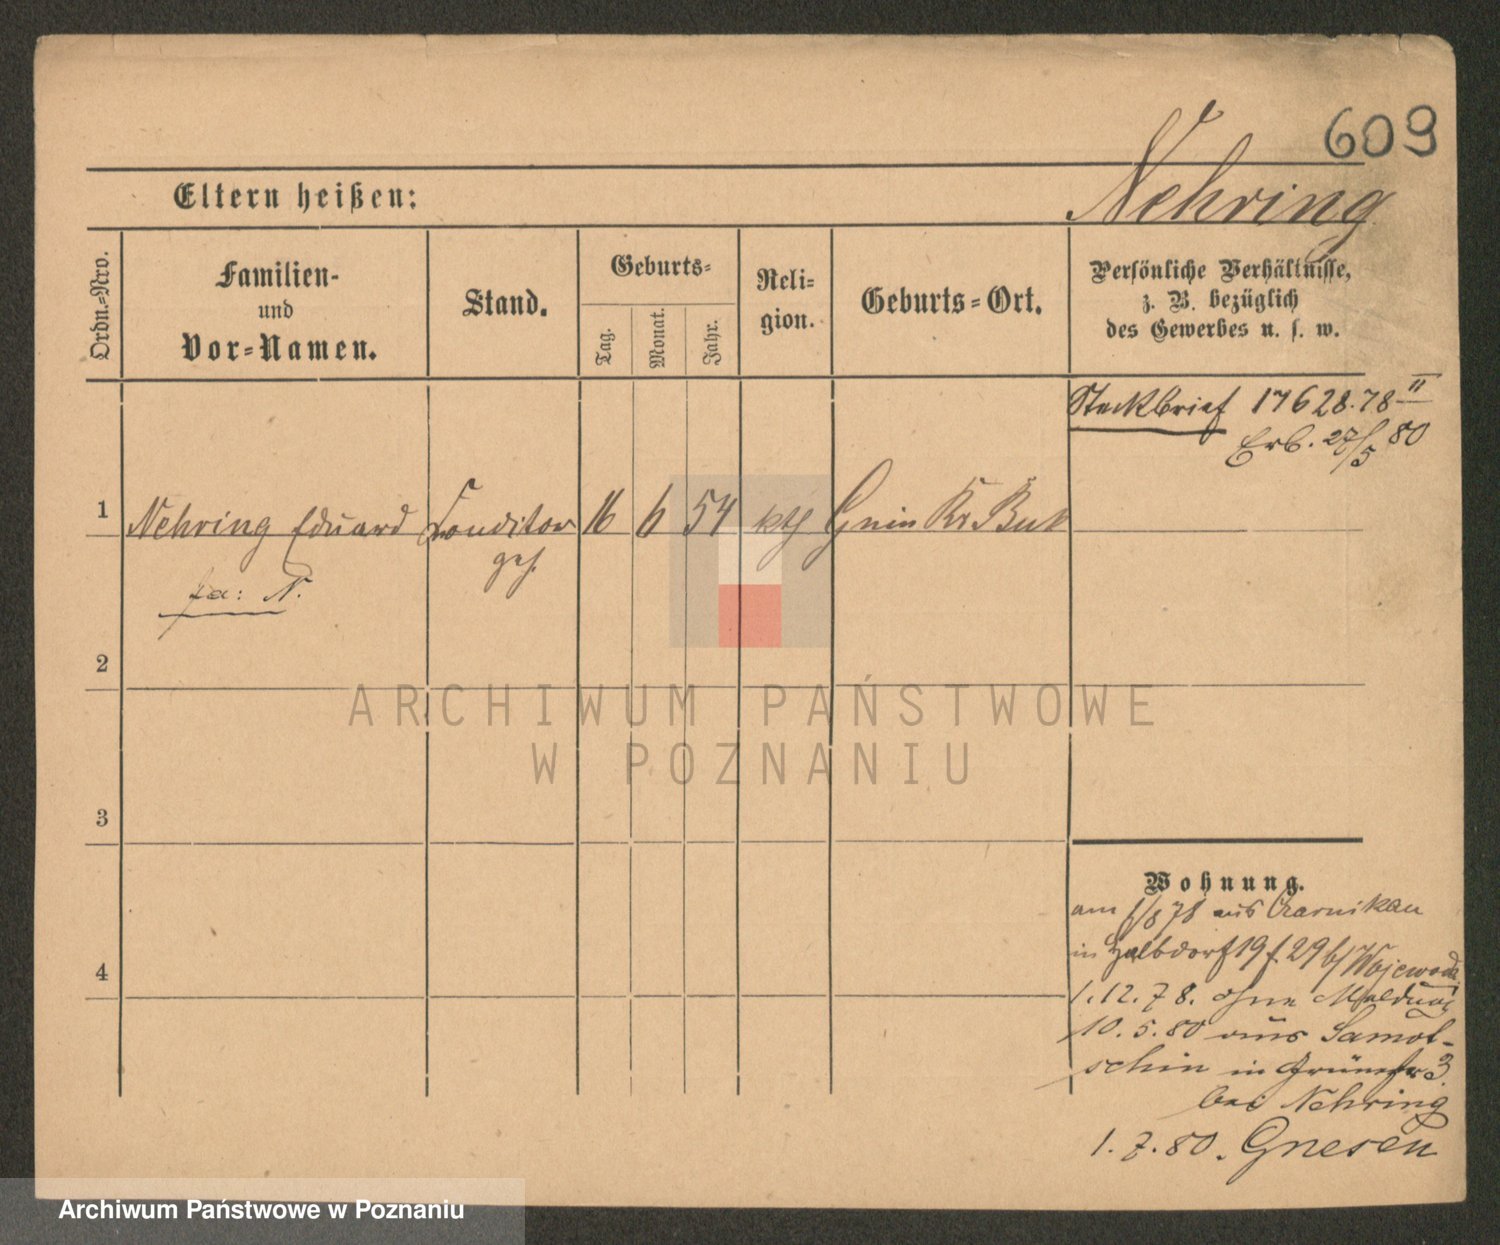 609
Nehring
Eltern heißen:
Ordn.-Nro.
Familien-
und
Vor-Namen.
Stand.
Geburts-
Tag.
Monat.
Jahr.
Reli-
gion.
Geburts-Ort.
Persönliche Verhältnisse,
z. B. bezüglich
des Gewerbes u. s. w.
Steckbrief 17628.78 II
Erb. 27/5 80
1 Nehring Eduard Conditor 16 6 54 kth Gnin Kr Buk
geh.
fa: N.
2
3
4
ARCHIWUM PAŃSTWOWE
W POZNANIU
Wohnung.
am 1/8 78 aus Czarnikau
in Halbdorf 19 f. 29 b/ Wojewoda
1.12.78. ohne Meldung
10.5.80 aus Samot-
schin in Grünestr 3.
bei Nehring
1.7.80. Gnesen
Archiwum Państwowe w Poznaniu